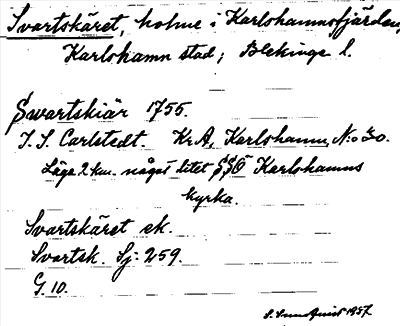 Svartskäret, holme i Karlshamnsfjärden,
Karlshamn stad; Blekinge l.
Swartskiär 1755.
J. S. Carlstedt. Kr A, Karlshamn, N:o 30.
Läge 2 km. något litet SSÖ Karlshamns
kyrka.
Svartskäret ek.
Svartsk. Sj: 259.
G. 10.
S. Sundquist 1957.